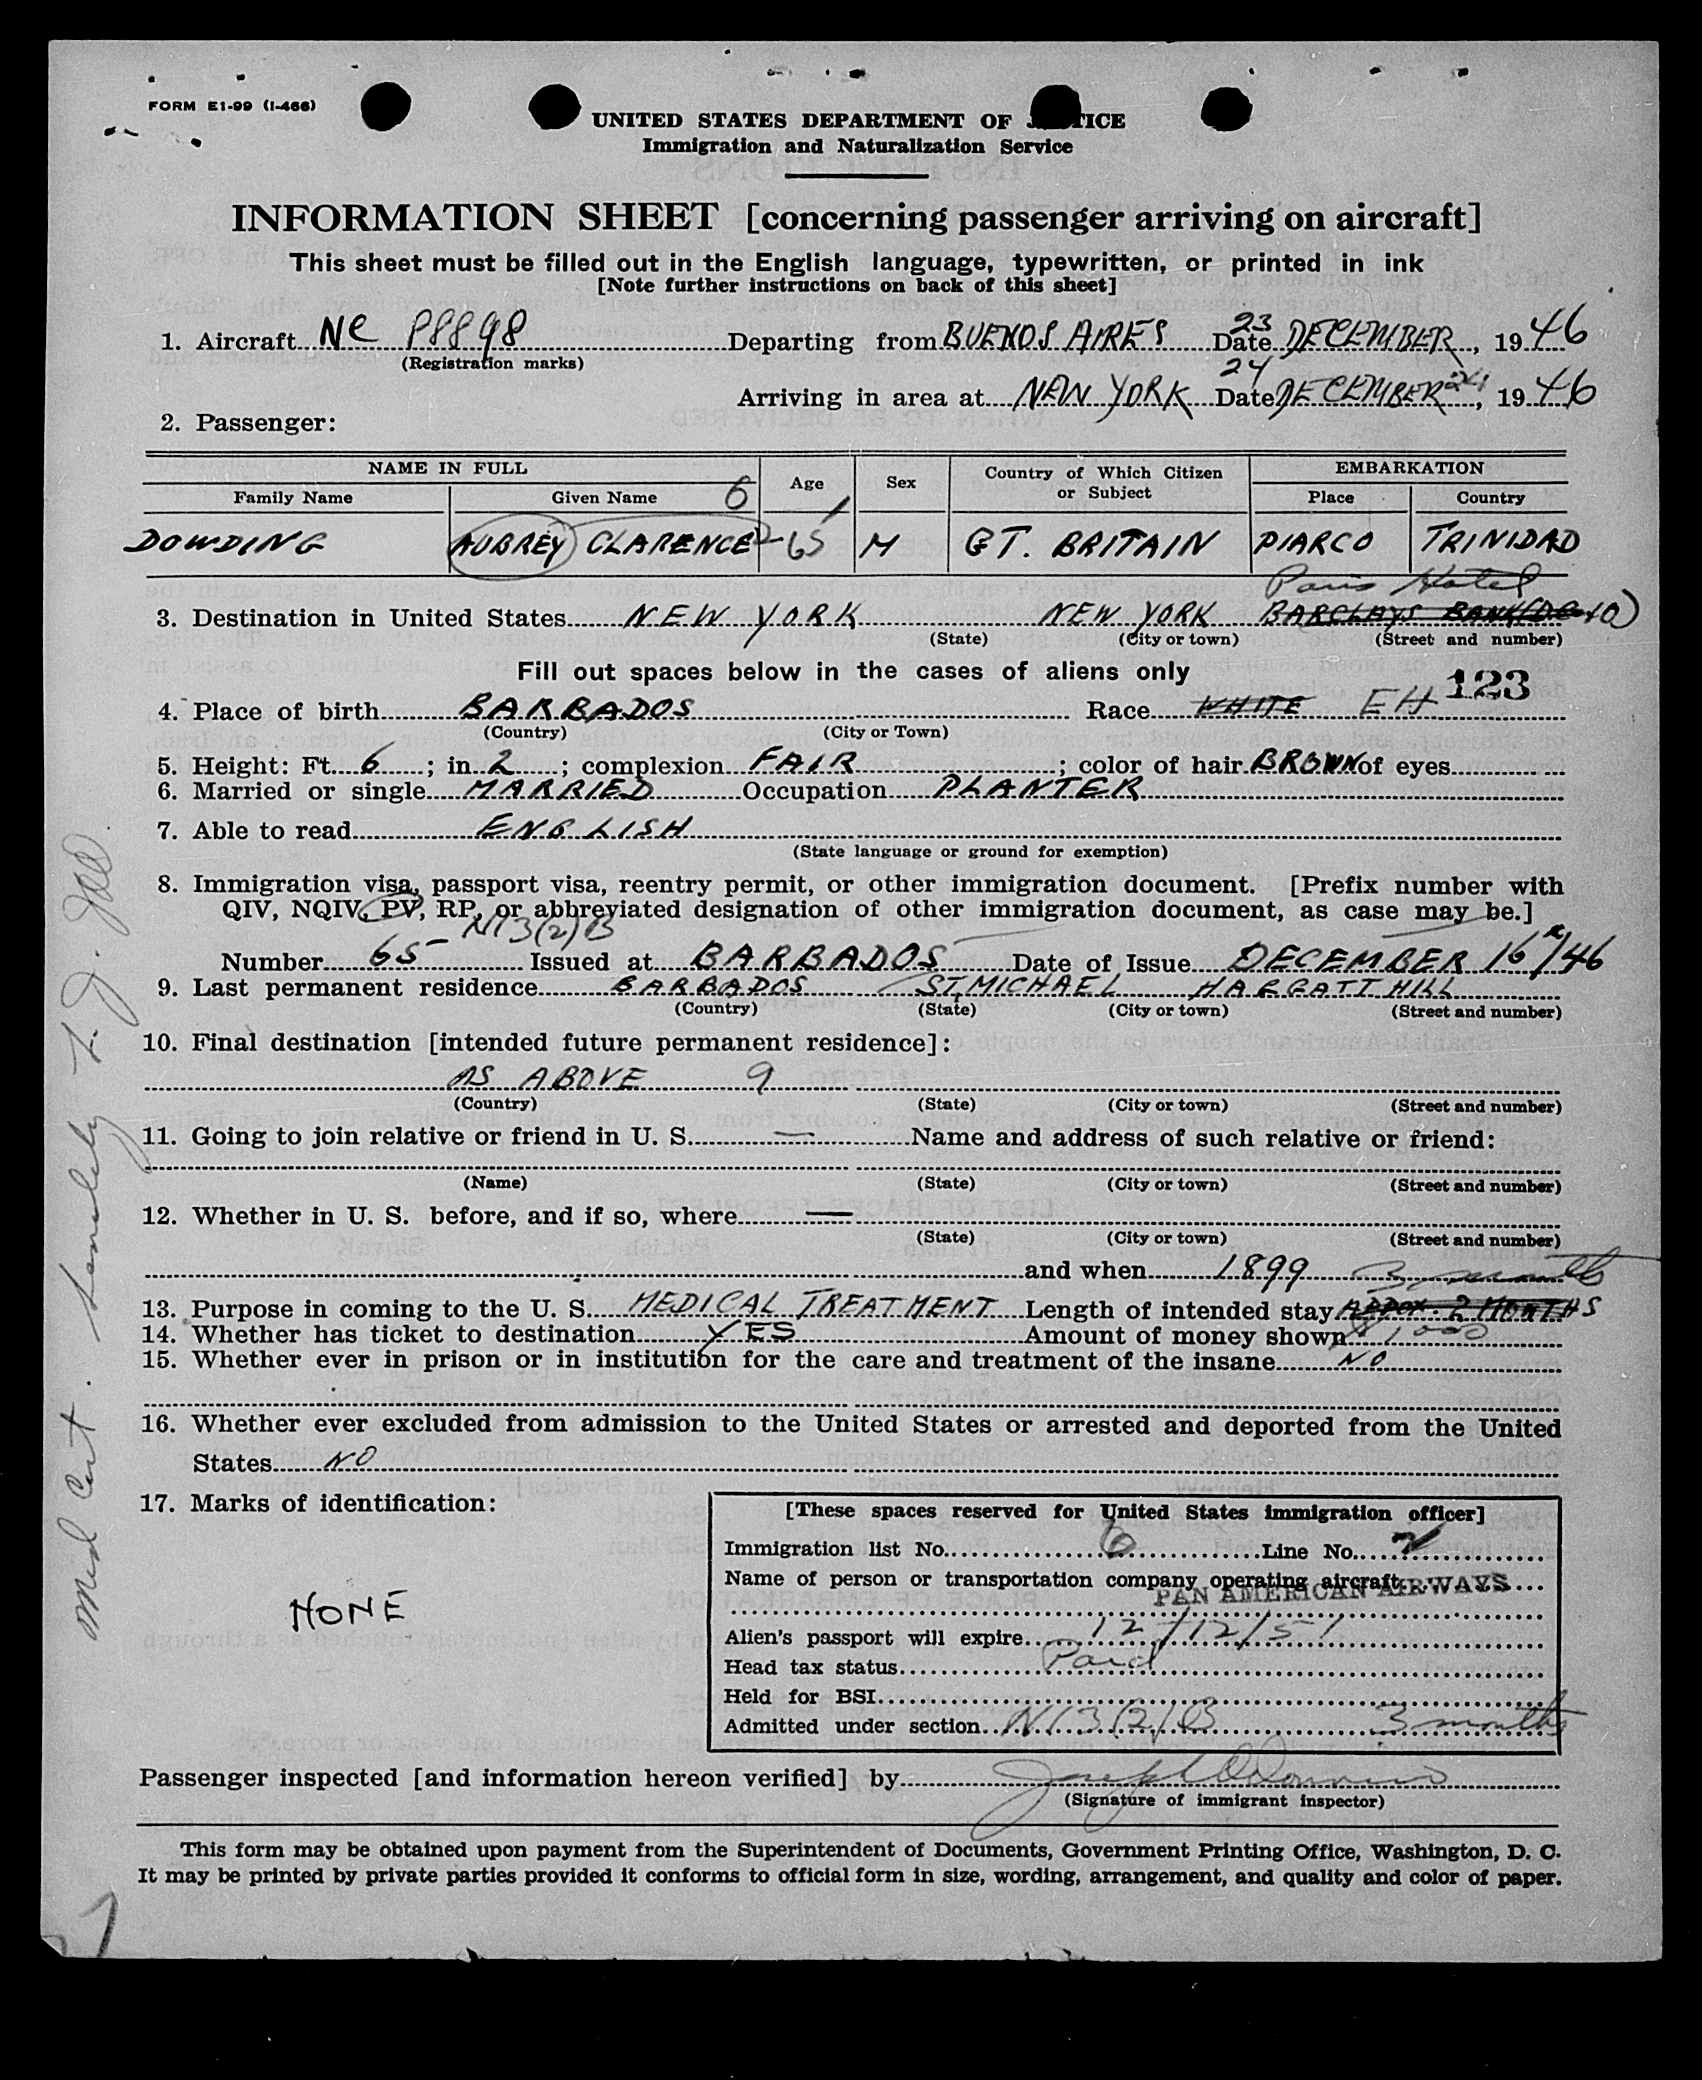 FORM E1-99 (I-466)
UNITED STATES DEPARTMENT OF JUSTICE
Immigration and Naturalization Service
INFORMATION SHEET [concerning passenger arriving on aircraft]
This sheet must be filled out in the English language, typewritten, or printed in ink
[Note further instructions on back of this sheet]
1. Aircraft NC 88898 Departing from BUENOS AIRES Date 23 DECEMBER, 1946
(Registration marks)
Arriving in area at NEW YORK Date 24 DECEMBER 24, 1946
2. Passenger:
NAME IN FULL Age Sex Country of Which Citizen or Subject EMBARKATION
Family Name Given Name 6 Place Country
DOWDING AUBREY CLARENCE 65 M GT. BRITAIN PIARCO TRINIDAD
Paris Hotel
3. Destination in United States NEW YORK NEW YORK BARCLAYS BANK (DC & O)
(State) (City or town) (Street and number)
Fill out spaces below in the cases of aliens only
123
4. Place of birth BARBADOS Race WHITE EH
(Country) (City or Town)
5. Height: Ft. 6; in. 2; complexion FAIR; color of hair BROWN of eyes
6. Married or single MARRIED Occupation PLANTER
7. Able to read ENGLISH
(State language or ground for exemption)
8. Immigration visa, passport visa, reentry permit, or other immigration document. [Prefix number with
QIV, NQIV, PV, RP, or abbreviated designation of other immigration document, as case may be.]
N13(2)B
Number 65 Issued at BARBADOS Date of Issue DECEMBER 16/46
9. Last permanent residence BARBADOS ST. MICHAEL HAGGATT HILL
(Country) (State) (City or town) (Street and number)
10. Final destination [intended future permanent residence]:
AS ABOVE 9
(Country) (State) (City or town) (Street and number)
11. Going to join relative or friend in U. S. — Name and address of such relative or friend:
(Name) (State) (City or town) (Street and number)
12. Whether in U. S. before, and if so, where —
(State) (City or town) (Street and number)
and when 1899 3 months
13. Purpose in coming to the U. S. MEDICAL TREATMENT Length of intended stay APPOX. 2 MONTHS
14. Whether has ticket to destination YES Amount of money shown $1,000
15. Whether ever in prison or in institution for the care and treatment of the insane NO
16. Whether ever excluded from admission to the United States or arrested and deported from the United
States NO
17. Marks of identification:
NONE
[These spaces reserved for United States immigration officer]
Immigration list No. 6 Line No. 2
Name of person or transportation company operating aircraft
PAN AMERICAN AIRWAYS
Alien's passport will expire 12/12/51
Head tax status Paid
Held for BSI
Admitted under section N13(2)B 3 months
Passenger inspected [and information hereon verified] by
(Signature of immigrant inspector)
This form may be obtained upon payment from the Superintendent of Documents, Government Printing Office, Washington, D. C.
It may be printed by private parties provided it conforms to official form in size, wording, arrangement, and quality and color of paper.
Med Cert.